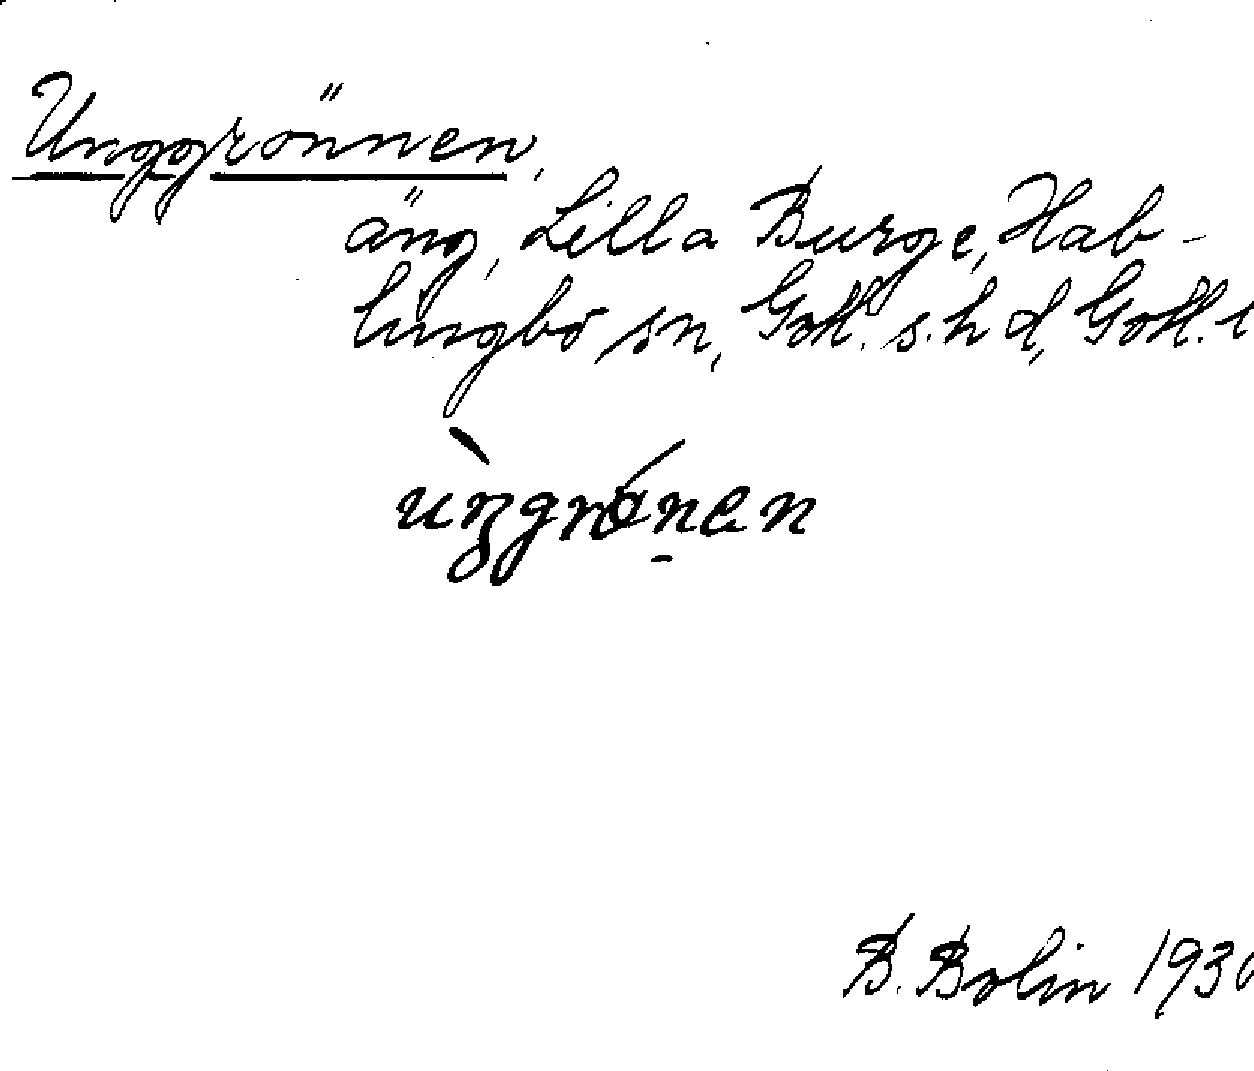 Unggrönnen,
äng, Lilla Burge, Hab-
lingbo sn, Gotl. s. hd, Gotl. l
ùŋgrǿnen
B. Bolin 1930